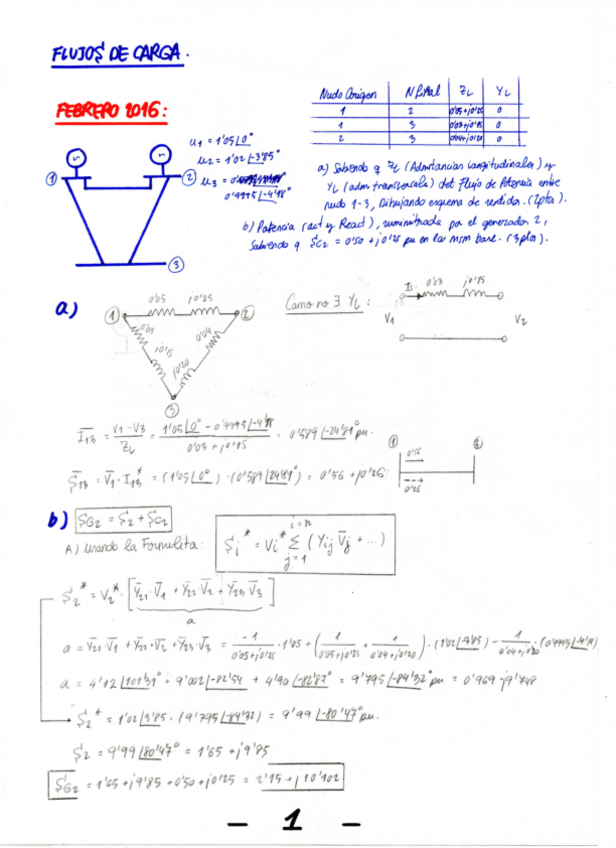 FLUJOS DE CARGA.
FEBRERO 2016:
Nudo Origen N final ZL YL
1 2 0'05+j0'25 0
1 3 0'03+j0'15 0
2 3 0'04+j0'20 0
u1 = 1'05|0°
u2 = 1'02|-3'85
u3 =
0'9995|-4'18
1
2
3
a) Sabiendo q ZL (Admitancias longitudinales) y
YL (adm transversala) del Flujo de Potencia entre
nudo 1-3, Dibujando esquema de sentidos. (2pto).
b) Potencia (act y React), suministrada por el generador 2,
Sabiendo q SC2 = 0'50 + j0'25 pu en la mism base. (3ptos).
a)
0'05 j0'25
1 2
0'03 j0'15
0'04 j0'20
3
Como no ∃ YL :
Is 0'03 j0'15
V1 V2
I13 = V1 - V3 / ZL = 1'05|0° - 0'9995|-4'18 / 0'03 + j0'15 = 0'589|-24'81° pu.
S13 = V1 · I13* = (1'05|0°) · (0'589|24'81°) = 0'56 + j0'26
0'56
0'26
b) SG2 = S2 + SC2
A) Usando la Formulita:
Si* = Vi* Σ (Yij Vj + ...)
i=n
j=1
S2* = V2* [Y21·V1 + Y22·V2 + Y23·V3]
a
a = Y21·V1 + Y22·V2 + Y23·V3 = -1 / 0'05+j0'25 · 1'05 + (1 / 0'05+j0'25 + 1 / 0'04+j0'20) · (1'02|-3'85) - 1 / 0'04+j0'20 · (0'9995|-4'18)
a = 4'12|101'31° + 9'002|-82'54 + 4'90|-82'87° = 9'795|-84'32° pu = 0'969 - j9'748
S2* = 1'02|3'85 · (9'795|-84'32) = 9'99|-80'47° pu.
S2 = 9'99|80'47° = 1'65 + j9'85
SG2 = 1'65 + j9'85 + 0'50 + j0'25 = 2'15 + j10'102
- 1 -